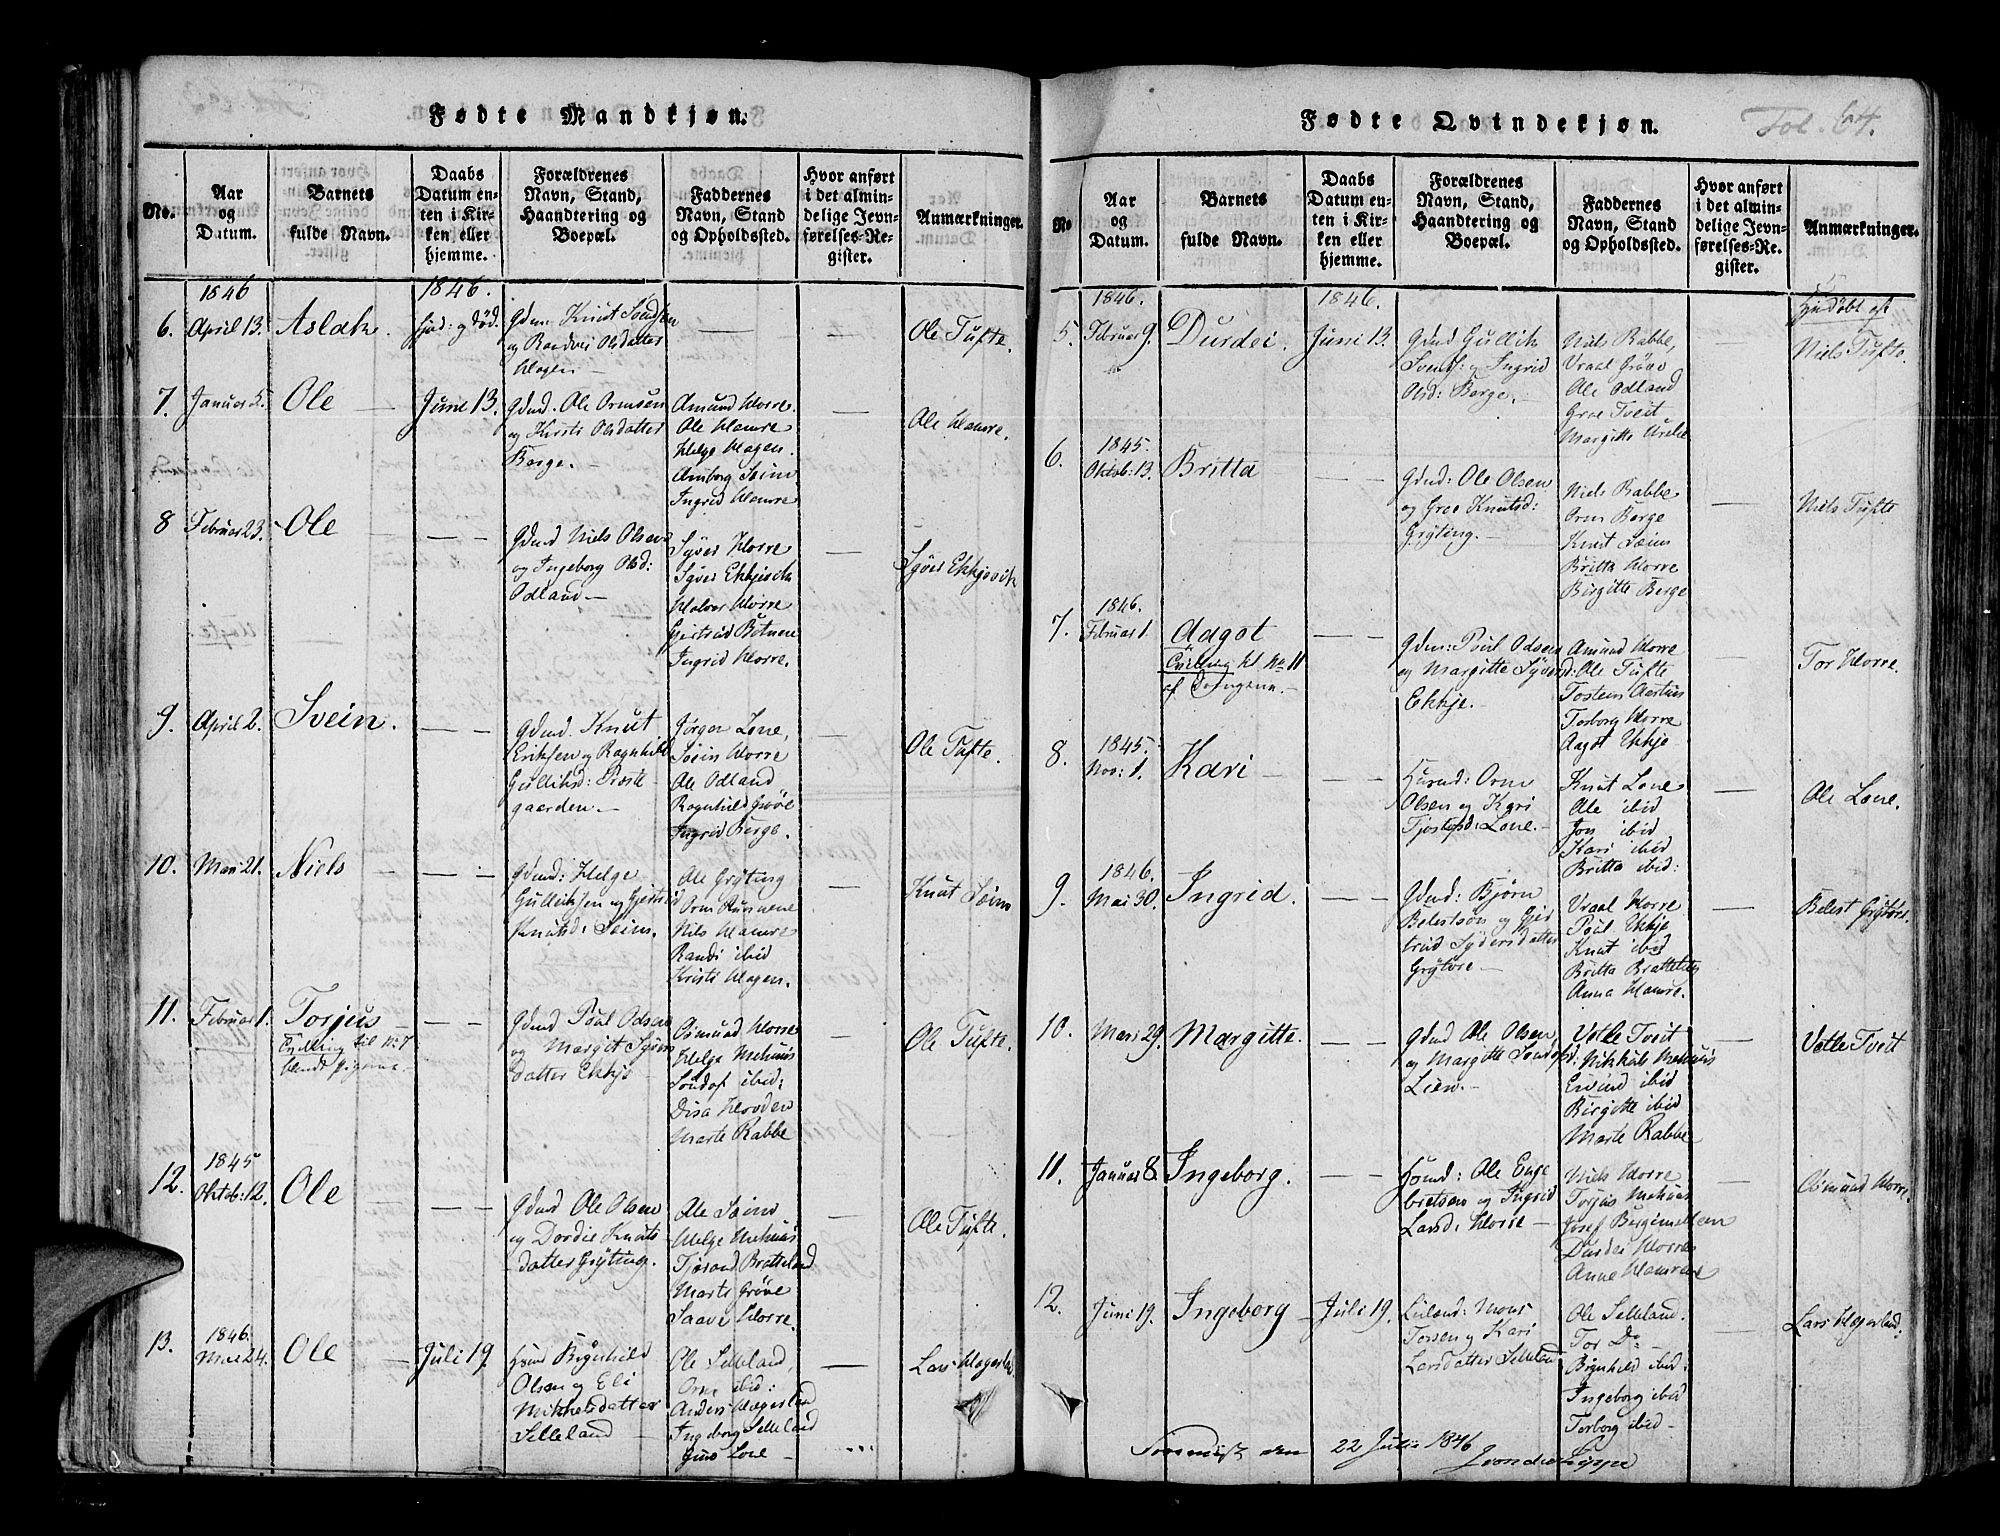 Fødte Mandkjøn.
No.
Aar og Datum.
Barnets fulde Navn.
Daabs Datum enten i Kirken eller hjemme.
Forældrenes Navn, Stand, Haandtering og Boepæl.
Faddernes Navn, Stand og Opholdssted.
Hvor anført i det almindelige Jevnførelses-Register.
Anmærkninger.
1846 1846.
6. April 13. Aslak hjd: og død.
Gdm: Knut
Olsdatter
Hagen
Ole Tufte.
7. Januar 5. Ole — Juni 13.
Gdmd. Ole Ormsen
og Kirsti Olsdatter
Berge.
Amund Horre.
Ole Hamre.
Helge Hagen.
Amborg Seim
Ingrid Hamre
Ole Hamre.
8 Februar 23. Ole
Gdmd Niels Olsen
og Ingeborg Olsd:
Odland —
Syver Horre
Syver Ekkjevik
Halvor Horre
Gjertrud Botnene
Ingrid Horre.
Syver Ekkjevik
9. April 2. Svein.
Gdmd. Knut
Eriksen og Ragnhild
Gulliksd: Præste
gaarden. —
Jørgen Lone,
Svein Horre
Ole Odland
Ragnhild Grøve
Ingrid Berge.
Ole Tufte.
10. Mari 21. Niels
Gdmd: Helge
Gulliksen og Gjertrud
Knutsd: Seim.
Ole Grytting
Orm Runnene
Nils Hamre
Randi ibid
Kristi Hagen.
Knut Seim
11. Februar 1. Torjus
Tvilling til No 7
blandt pigerne.
Gdmd Poul Odsen
og Margit Syvers
datter Ekkje
Osmund Horre
Helge Mehuus
Soudof ibid:
Disa Hovden
Marte Rabbe
Ole Tufte.
1845
12. Oktob: 12. Ole
Gdmd Ole Olsen
og Dordie Knuts
datter Grytting.
Ole Seim
Helge Mehuus
Bratteland
Marte Grøve
Saave Horre.
Ole Tufte.
1846.
13. Mai 24. Ole — Juli 19.
Olsen og Eli
Mikkelsdatter
Selleland
Ole Selleland,
Orm ibid:
Anders Hagerland
Ingeborg Selleland
Lone —
Lars Hagerland
Fødte Qvindekjøn.
Fol. 64.
No
Aar og Datum.
Barnets fulde Navn.
Daabs Datum enten i Kirken eller hjemme.
Forældrenes Navn, Stand, Haandtering og Boepæl.
Faddernes Navn, Stand og Opholdssted.
Hvor anført i det almindelige Jevnførelses-Register.
Anmærkninger.
1846. 1846.
5. Februar 9. Durdei — Juni 13.
Gdmd Gullik
Svend: og Ingrid
Olsd: Berge.
Niels Rabbe,
Vraal Grøve
Ole Odland
Groe Tveit
Margitte Urelie
Hjdøbt af
Niels Tufte.
1845.
6. Oktob: 13. Britta
Gdmd: Ole Olsen
og Groe Knutsd:
Grytting. —
Niels Rabbe
Orm Berge
Knut Seim
Britta Horre
Birgitte Berge
Niels Tufte
1846.
7. Februar 1. Aagot
Tvilling til No 11
af Drengene. —
Gdmd: Poul Odsen
og Margitte Syversd:
Ekkje.
Amund Horre
Ole Tufte
Torborg Horre
Aagot Ekkje
Tor Horre.
1845.
8. Nov: 1. Kari
Husmd: Orm
Olsen og Kari
Tjostofsd: Lone. —
Knut Lone
Ole ibid
Jon ibid
Kari ibid
Britta ibid:
Ole Lone.
1846.
9. Mai 30. Ingrid.
Gdmd: Bjørn
Belestson og Gjer
trud Syversdatter
Grytøre —
Vraal Horre
Poul Ekkje
Knut ibid
Britta Bratteteig
Anna Hamre.
Belest Grytøre
10. Mars 29. Margitte.
Gdmd Ole Olsen
og Margitte
Lien. —
Vetle Tveit
Mikkel Mehuus
Eivind ibid
Birgitte ibid
Marte Rabbe
Vetle Tveit
11. Januar 8. Ingeborg.
Husmd: Ole Enge
bretsen og Ingrid
Larsd: Horre —
Niels Horre
Torjus Mehuus
Josef
Durdei Horre
Anne Hamre
Osmund Horre.
12. Juni 19. Ingeborg — Juli 19.
Mons
Torsen og Kari
Larsdatter Selleland
Ole Selleland.
Tor Do
Brynhild ibid:
Ingeborg ibid
Torborg ibid —
Lars Hagerland:
den 22 Juli 1846